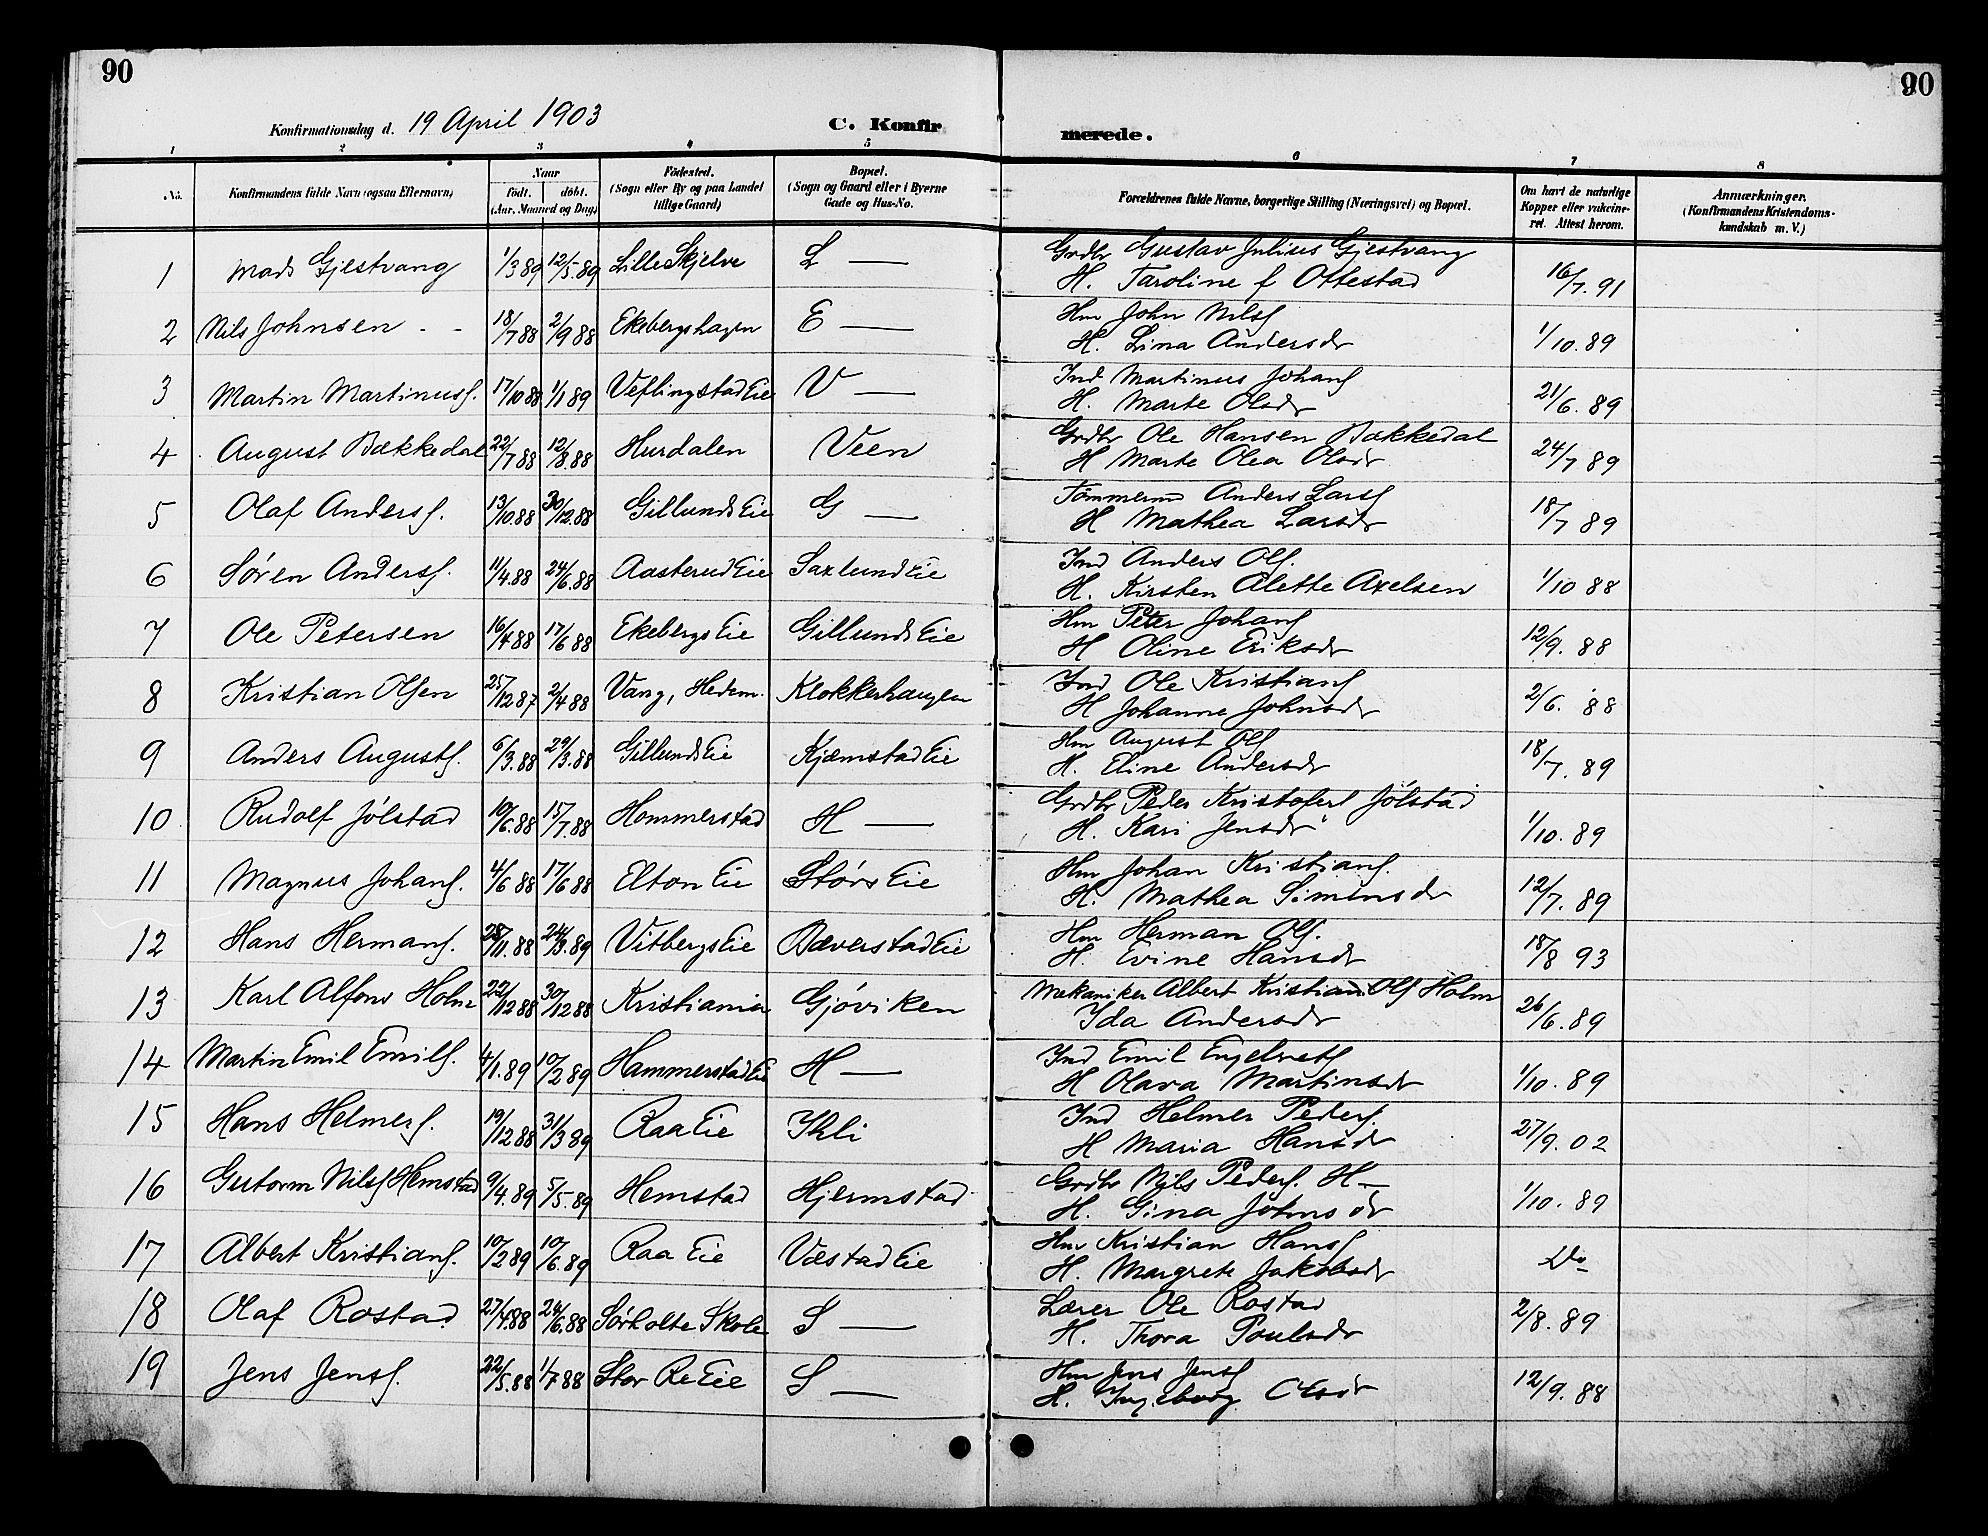 90
90
Konfirmationsdag d. 19 April 1903
C. Konfirmerede.
1 2 3 4 5 6 7 8
No.
Konfirmandens fulde Navn (ogsaa Efternavn)
Naar
født. døbt.
(Aar, Maaned og Dag)
Fødested.
(Sogn eller By og paa Landet
tillige Gaard)
Bopæl.
(Sogn og Gaard eller i Byerne
Gade og Hus-No.
Forældrenes fulde Navne, borgerlige Stilling (Næringsvei) og Bopæl.
Om havt de naturlige
Kopper eller vakcine-
ret. Attest herom.
Anmærkninger.
(Konfirmandens Kristendoms-
kundskab m. V.)
1 Mads Gjestvang 1/3 89 12/5. 89 Lille Skjelve L — Grdbr Gustav Julius Gjestvang
H. Taroline f Ottestad 16/7. 91
2 Nils Johnsen - - 18/7 88 2/9 88 Ekebergshagen E — Hm John Nilsf
H. Lina Andersdr 1/10. 89
3 Martin Martinusf. 17/10 88 1/1 89 Veflingstad Eie V — Ind Martinus Johansf
H. Marte Olsdr 21/6. 89
4 August Bækkedal 22/7 88 12/8. 88 Hurdalen Veen Grdbr Ole Hansen Bækkedal
H Marte Olea Olsdr 24/7 89
5 Olaf Andersf. 13/10 88 30/12. 88 Gillunds Eie G — Tømmermd Anders Larsf
H Mathea Larsdr 18/7 89
6 Søren Andersf. 11/4. 88 24/6. 88 Aasterud Eie Saxlund Eie Ind Anders Olsf.
H. Kirsten Alette Axelsen 1/10 88
7 Ole Petersen 16/4 88 17/6 88 Ekebergs Eie Gillunds Eie Hm Peter Johansf
H Oline Eriksdr 12/9. 88
8 Kristian Olsen 25/12 87 2/4 88 Vang, Hedem. Klokkerhaugen Ind Ole Kristiansf
H Johanne Johnsdr 2/6. 88
9 Anders Augustf. 6/3. 88 29/3. 88 Gillunds Eie Kjæmstad Eie Hm August Olsf
H. Eline Andersdr 18/7. 89
10 Rudolf Jølstad 10/6. 88 15/7. 88 Hommerstad H — Grdbr Peder Kristofers Jølstad
H. Kari Jensdr 1/10. 89
11 Magnus Johansf. 4/6 88 17/6 88 Elton Eie Støvs Eie Hm Johan Kristiansf.
H. Mathea Simensdr 12/7. 89
12 Hans Hermansf. 28/11. 88 24/3. 89 Vitbergs Eie Bæverstad Eie Hm Herman Olsf.
H. Evine Hansdr 18/8 93
13 Karl Alfons Holm 22/12 88 30/12 88 Kristiania Gjøviken Mekaniker Albert Kristian Olsf Holm
Ida Andersdr 26/6. 89
14 Martin Emil Emilsf. 4/1. 89 10/2 89 Hammerstad Eie H — Ind Emil Engelretsf
H Olava Martinsdr 1/10. 89
15 Hans Helmersf. 19/12 88 31/3 89 Raa Eie Ihli Ind Helmer Pedersf.
H Maria Hansdr 27/9. 02
16 Guttorm Nilsf Hemstad 9/4. 89 5/5. 89 Hemstad Hjermstad Grdbr Nils Pedersf. H —
H. Gina Johnsdr 1/10. 89
17 Albert Kristiansf. 10/2 89 10/6. 89 Raa Eie Væstad Eie Hm Kristian Hansf
H. Margrete Jakobsdr Do
18 Olaf Rostad 27/4. 88 24/6. 88 Sørholte Skole S — Lærer Ole Rostad
H. Thora Poulsdr 2/8. 89
19 Jens Jensf. 22/5. 88 1/7 88 Stor Re Eie S — Hm Jens Jensf
H. Ingeborg Olsdr 12/9. 88